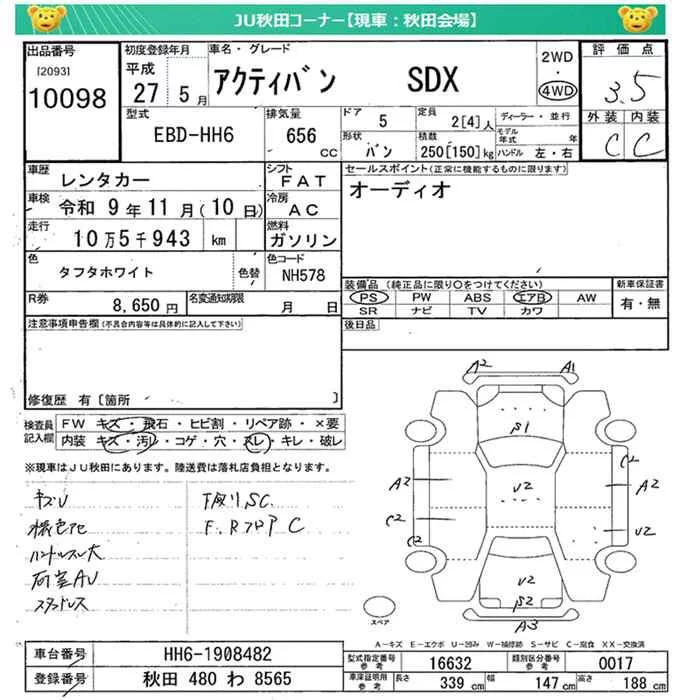 JU秋田コーナー【現車：秋田会場】
出品番号
[2093]
10098
初度登録年月
平成
27 5月
車名・グレード
アクティバン SDX
2WD
・
4WD
評価点
3.5
外装 内装
C C
型式
EBD-HH6
排気量
656 cc
ドア 5
形状 バン
定員 2[4]人
積載 250[150]kg
ディーラー・並行
モデル年式 年
ハンドル 左・右
車歴 レンタカー
シフト FAT
車検 令和 9年11月(10日)
冷房 AC
走行 10万5千943 km
燃料 ガソリン
色 タフタホワイト
色替
色コード NH578
R券 8,650円
名変通知期限 月 日
セールスポイント(正常に機能するものに限ります)
オーディオ
装備品 (純正品に限り○をつけてください)
PS PW ABS エアB AW
SR ナビ TV カワ
新車保証書
有・無
後日品
注意事項申告欄(不具合内容等は具体的に記入して下さい)
修復歴 有〔箇所 〕
検査員記入欄
FW キズ・飛石・ヒビ割・リペア跡・×要
内装 キズ・汚レ・コゲ・穴・スレ・キレ・破レ
※現車はJU秋田にあります。陸送費は落札店負担となります。
キズU
ハンドルスレ大
荷室AU
スタッドレス
下廻りSC
F.Rフロア C
A2 A1
S1
C2
A2 U2 A2
C2 U2
C2
U2
S2
A3
スペア
A－キズ E－エクボ U－凹み W－補修跡 S－サビ C－腐食 XX－交換済
車台番号 HH6-1908482
登録番号 秋田 480 わ 8565
型式指定番号 参考 16632
類別区分番号 参考 0017
車庫証明用 参考 長さ 339 cm 幅 147 cm 高さ 188 cm